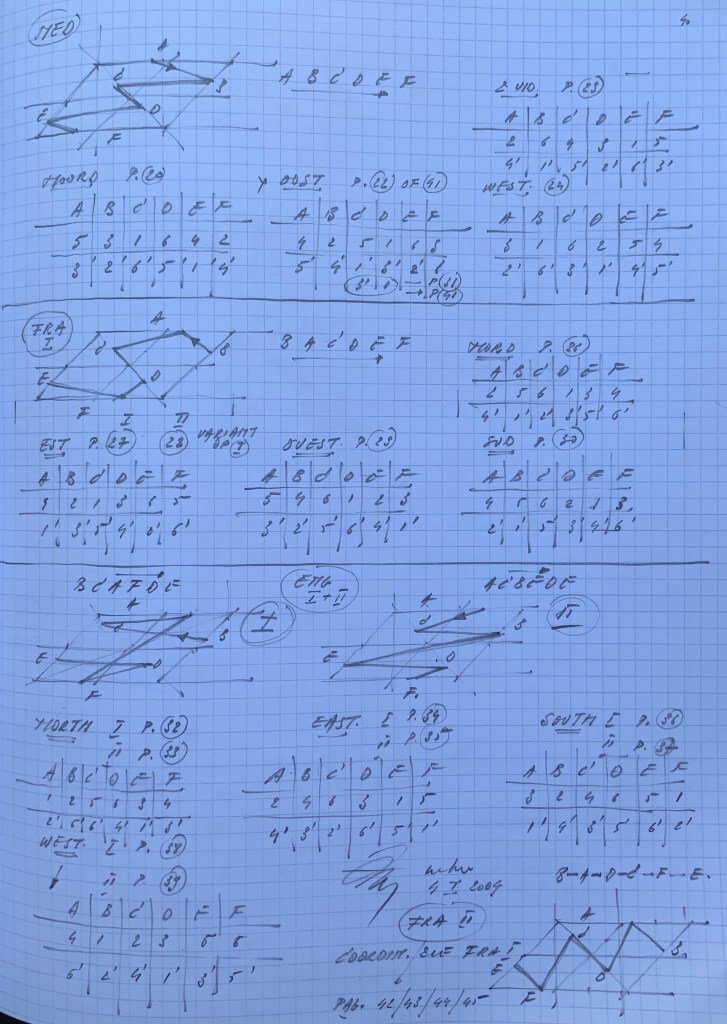 4.
NED
A B C D E F
ZUID P. 23
A B C D E F
2 6 4 3 1 5
4' 1' 5' 2' 6' 3'
NOORD P. 20
A B C D E F
5 3 1 6 4 2
3' 2' 6' 5' 1' 4'
OOST P. 22 OF 41
A B C D E F
4 2 5 1 6 3
WEST. 24
A B C D E F
3 1 6 2 5 4
2' 6' 3' 1' 4' 5'
FRA I
B A C D E F
NORD P. 26
A B C D E F
2 5 6 1 3 4
4' 1' 2' 3' 5' 6'
I II
EST P. 27 28 VARIANT OP I
A B C D E F
OUEST. P. 29
A B C D E F
5 4 6 1 2 3
3' 2' 5' 6' 4' 1'
SUD P. 30
A B C D E F
4 5 6 2 1 3
2' 1' 5' 3' 4' 6'
B C A F D E
ENG I + II
A C B E D E
I
II
NORTH I P. 32
II P. 33
A B C D E F
1 2 5 6 3 4
2' 5' 6' 4' 1' 3'
EAST. I P. 34
II P. 35
A B C D E F
2 4 6 3 1 5
4' 3' 2' 6' 5' 1'
SOUTH I P. 36
II P. 37
A B C D E F
3 2 4 6 5 1
1' 4' 3' 5' 6' 2'
WEST. I P. 38
II P. 39
A B C D E F
6' 2' 4' 1' 3' 5'
4 I. 2004
B-A-D-C-F-E.
FRA II
COORDIN. ZIE FRA I
PAG. 42/43/44/45